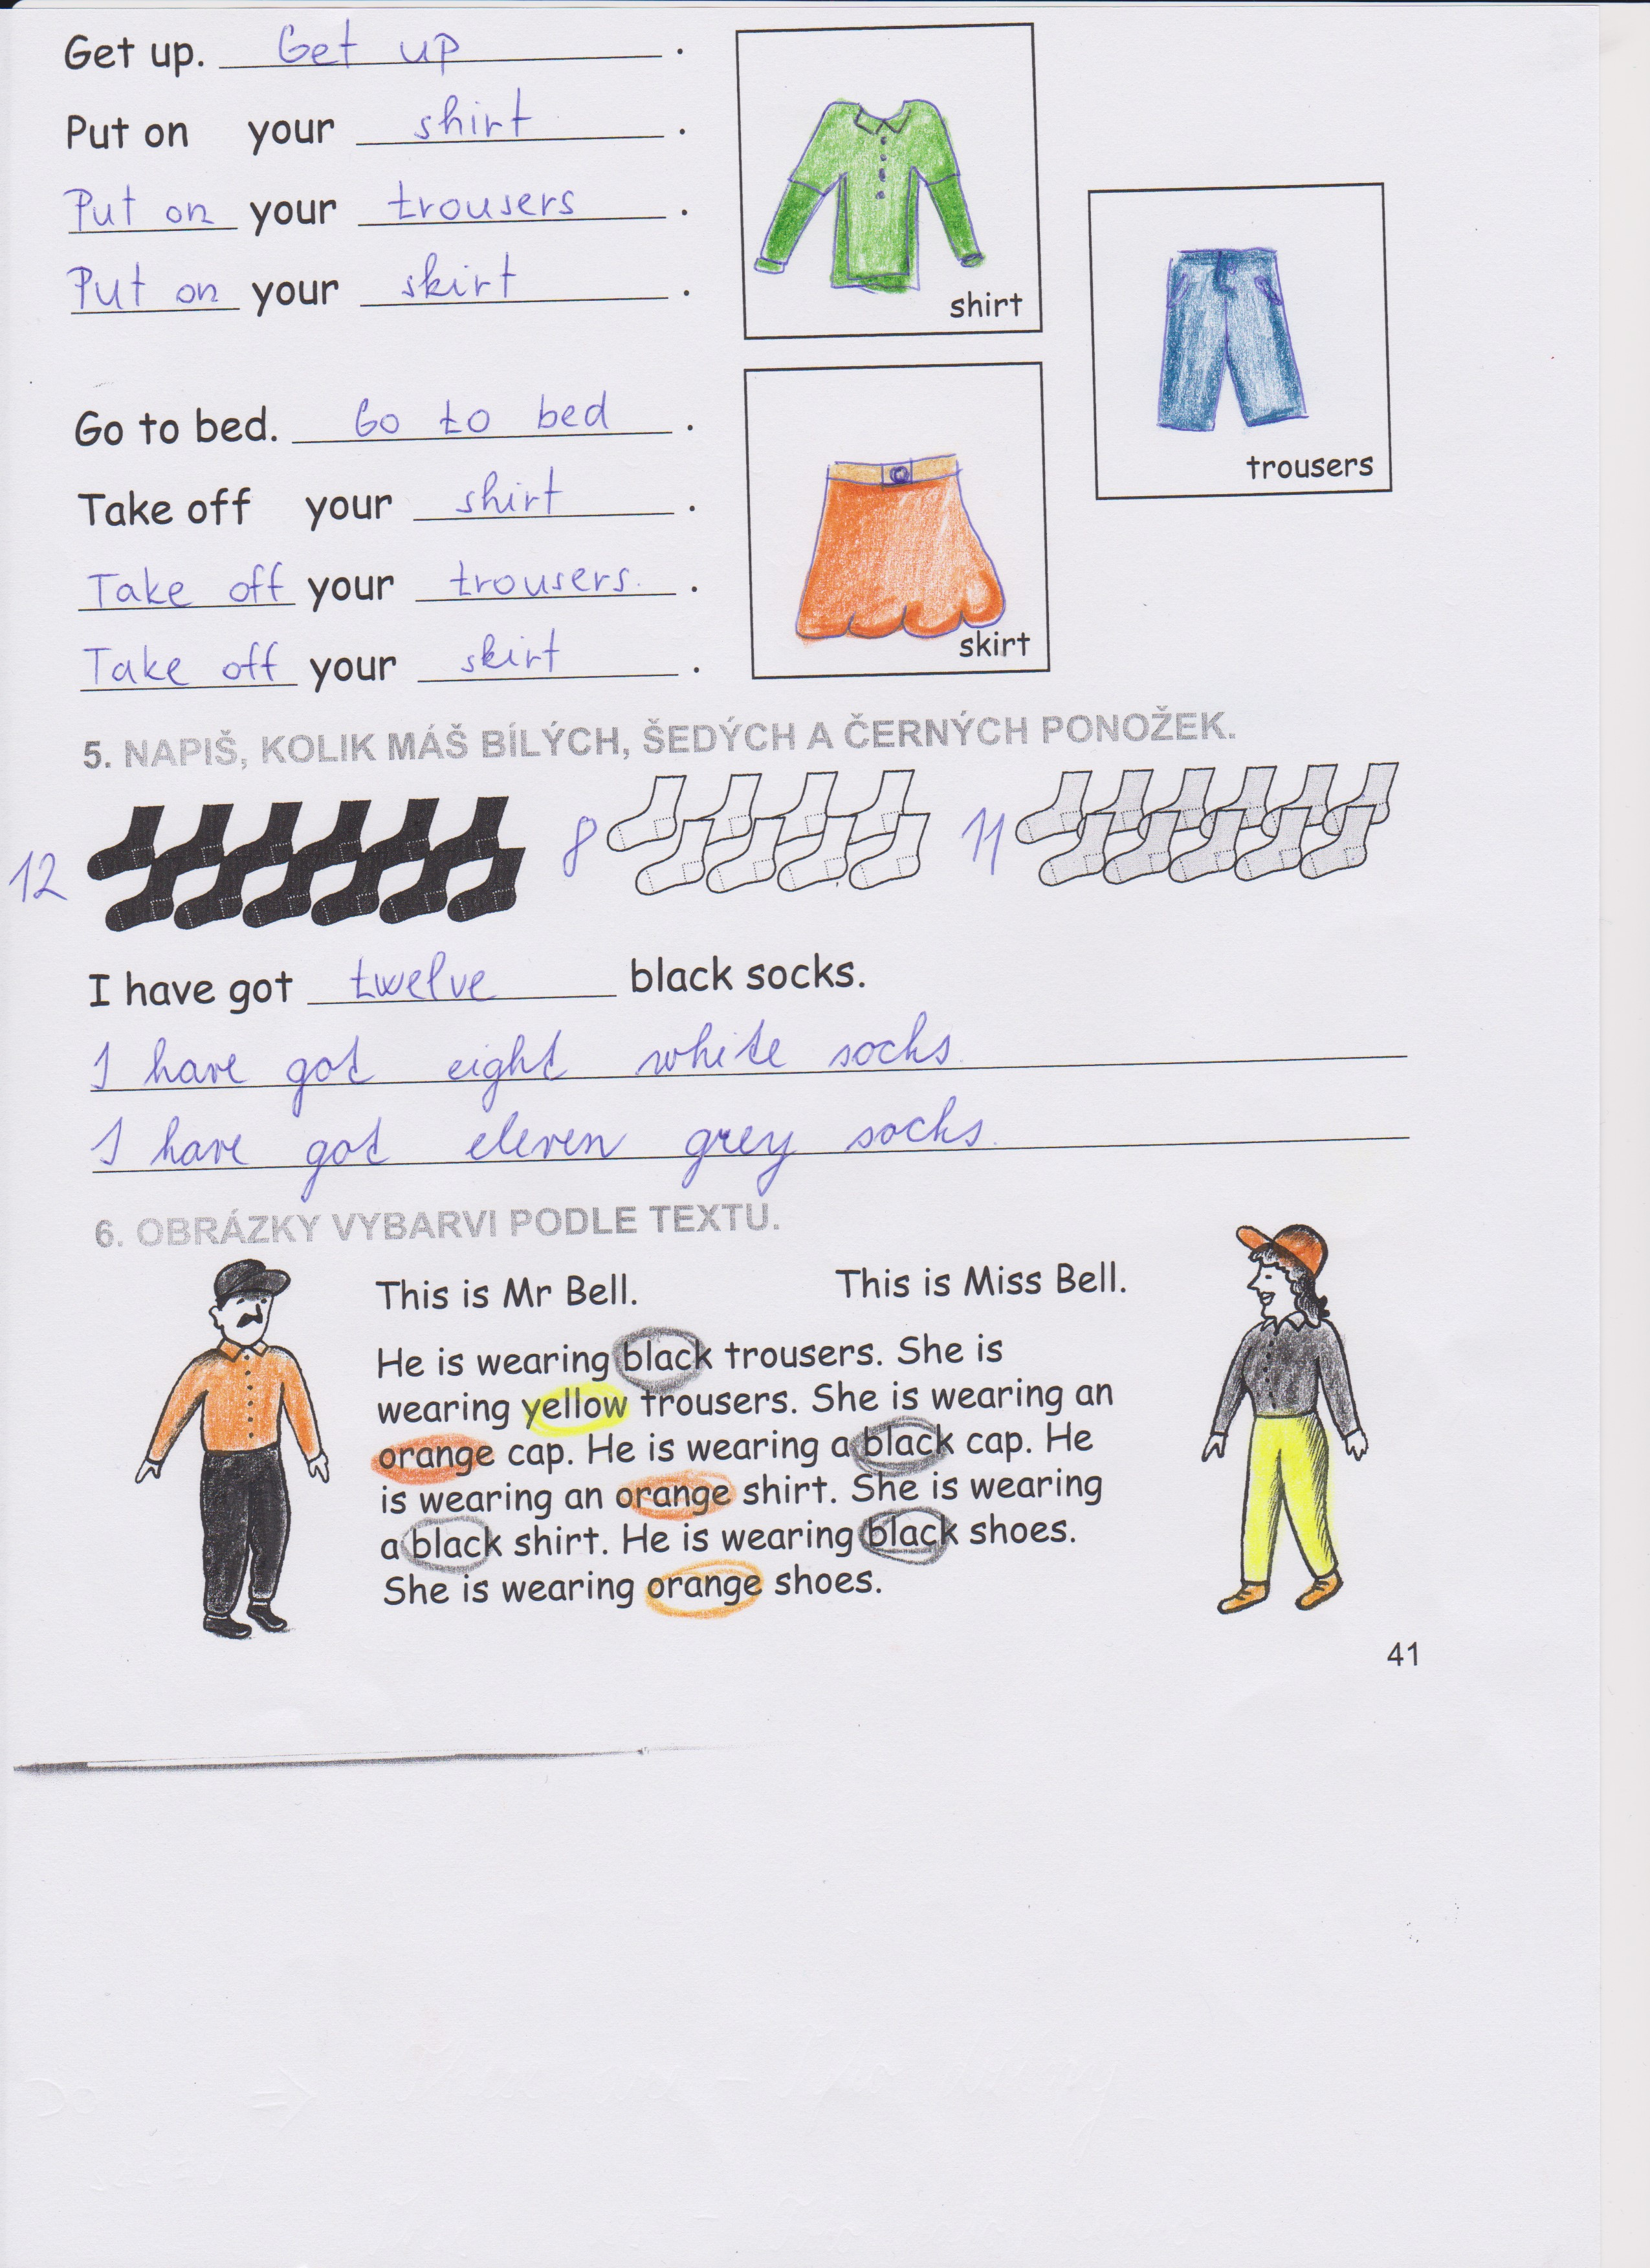 Get up. Get up .
Put on your shirt .
Put on your trousers .
Put on your skirt .
shirt
trousers
Go to bed. Go to bed .
Take off your shirt .
Take off your trousers. .
Take off your skirt .
skirt
5. NAPIŠ, KOLIK MÁŠ BÍLÝCH, ŠEDÝCH A ČERNÝCH PONOŽEK.
12 8 11
I have got twelve black socks.
I have got eight white socks.
I have got eleven grey socks.
6. OBRÁZKY VYBARVI PODLE TEXTU.
This is Mr Bell. This is Miss Bell.
He is wearing black trousers. She is
wearing yellow trousers. She is wearing an
orange cap. He is wearing a black cap. He
is wearing an orange shirt. She is wearing
a black shirt. He is wearing black shoes.
She is wearing orange shoes.
41